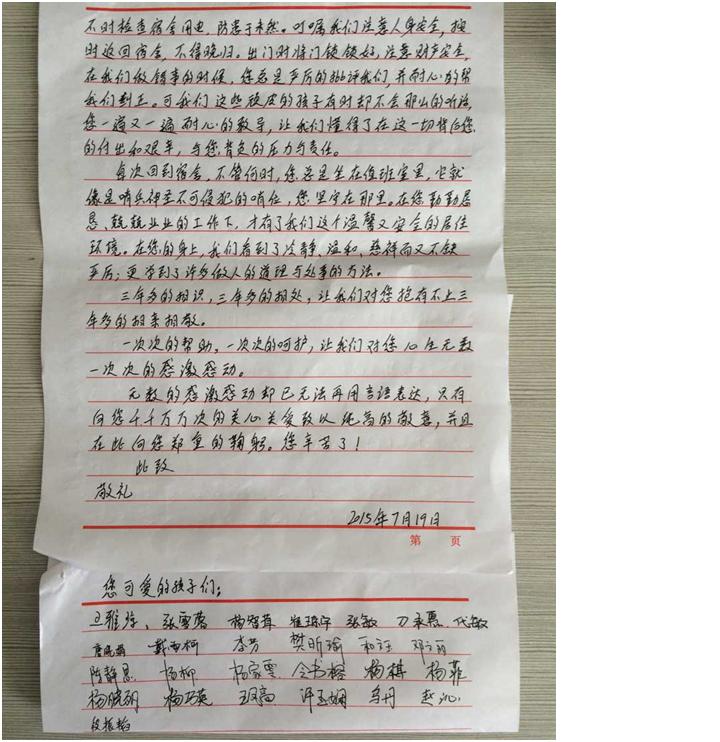 不时检查宿舍用电,防患于未然。叮嘱我们注意人身安全,按
时返回宿舍,不得晚归。出门时将门锁锁好,注意财产安全。
在我们做错事的时候,您总是严厉的批评我们,并耐心的帮
我们纠正。可我们这些顽皮的孩子有时却不会那么的听话,
您一遍又一遍耐心的教导,让我们懂得了在这一切背后您
的付出和艰辛,与您背负的压力与责任。
每次回到宿舍,不管何时,您总是坐在值班室里,它就
像是哨兵神圣不可侵犯的哨位,您坚守在那里。在您勤勤恳
恳、兢兢业业的工作下,才有了我们这个温馨又安全的居住
环境。在您的身上,我们看到了冷静、温和、慈祥而又不缺
严厉;更学到了许多做人的道理与处事的方法。
三年多的相识,三年多的相处,让我们对您抱有不止三
年多的相亲相敬。
一次次的帮助,一次次的呵护,让我们对您心生无数
一次次的感激感动。
无数的感激感动却已无法再用言语表达,只有
向您千千万万次的关心关爱致以纯高的敬意,并且
在此向您郑重的鞠躬。您辛苦了!
此致
敬礼
2015年7月19日
第 页
您可爱的孩子们:
张雪蓉 杨智茸 张敏 代敏
戴雨柯 李芳 樊昕瑜 邓立丽
陈静恩 杨柳 杨家雯 杨棋 杨菲
杨晓朗 杨巧英 王凤高 许玉娴 乌丹 赵沁
段振韬